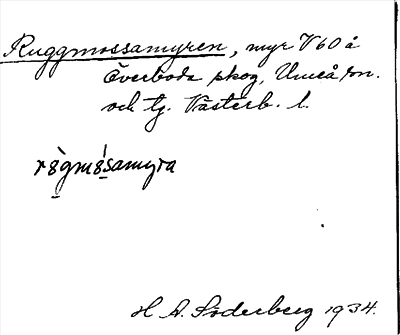 Ruggmossamyren, myr V 60 å
Överboda skog, Umeå sn.
och tg. Västerb. l.
rògmósamyra
H A. Söderberg 1934.